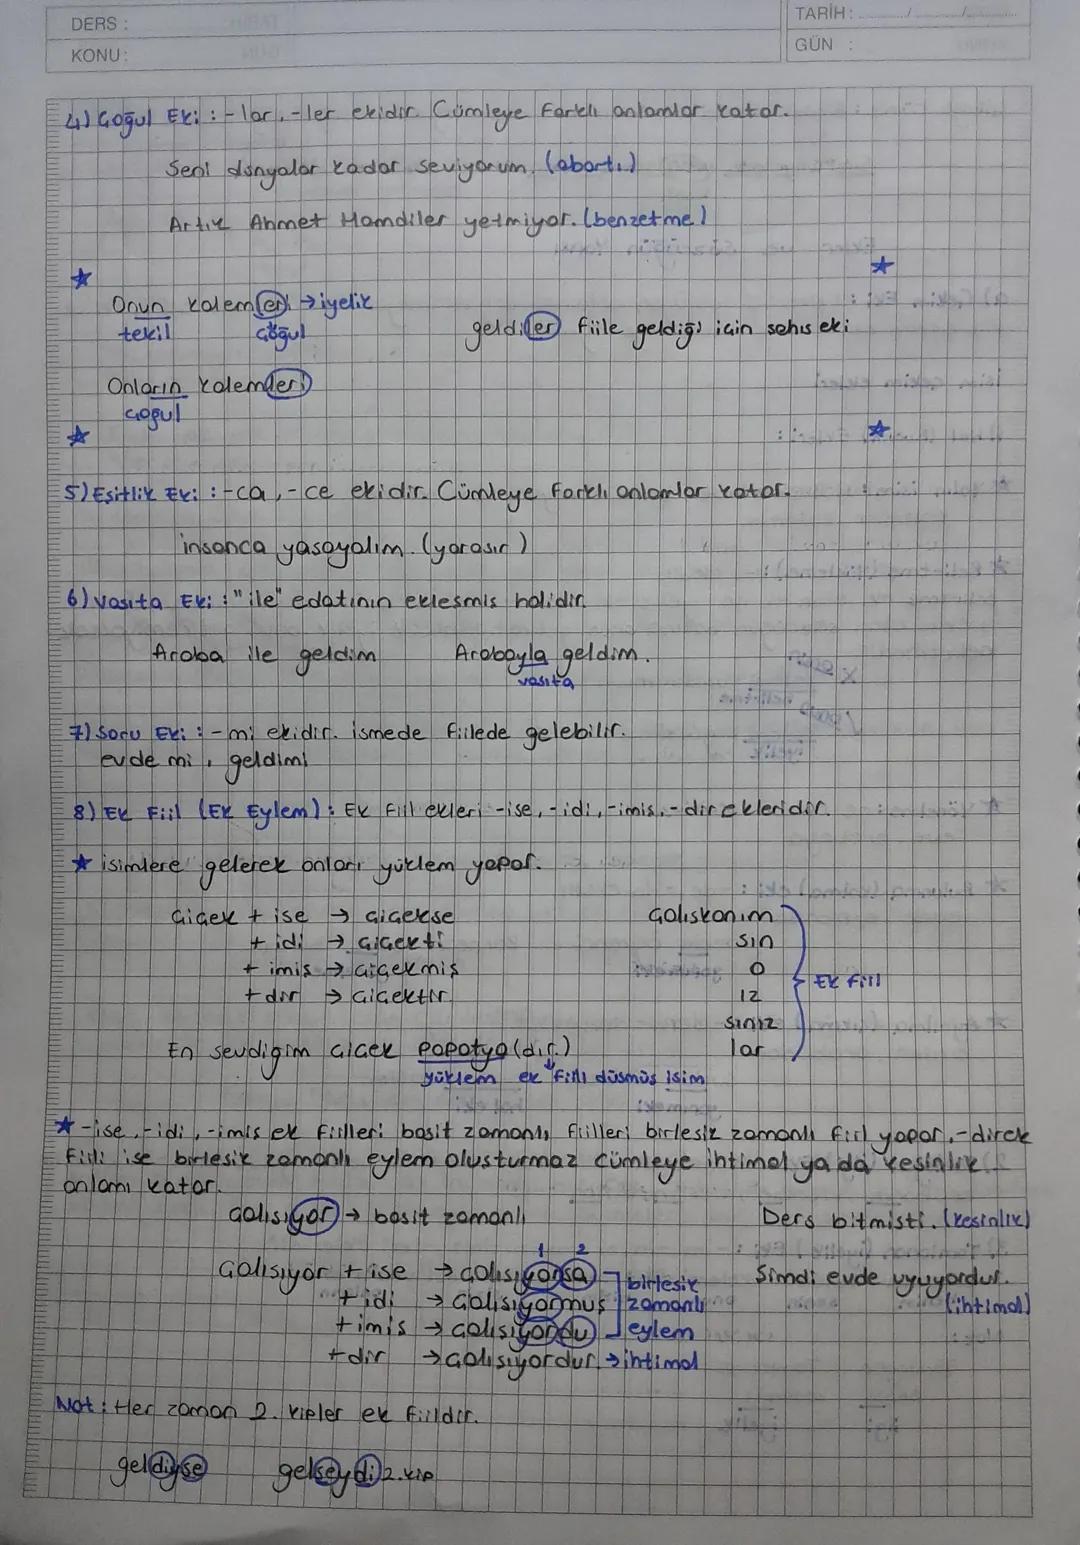 DERS :
KONU:
TARİH: ....... / ....... / .......
GÜN :
4) Çoğul Eki : -lar, -ler ekidir. Cümleye farklı anlamlar katar.
Seni dünyalar kadar seviyorum. (abartı)
Artık Ahmet Hamdiler yetmiyor. (benzetme)
Onun kalemleri → iyelik
tekil çoğul
geldiler fiile geldiği için şahıs eki
Onların kalemleri
çoğul
5) Eşitlik Eki : -ca, -ce ekidir. Cümleye farklı anlamlar katar.
insanca yaşayalım. (yaraşır)
6) Vasıta Eki : "ile" edatının ekleşmiş halidir.
Araba ile geldim Arabayla geldim.
vasıta
7) Soru Eki : -mi ekidir. ismede fiilede gelebilir.
evde mi, geldimi
8) Ek Fiil (Ek Eylem) : Ek fiil ekleri -ise, -idi, -imiş, -dir ekleridir.
★ isimlere gelerek onları yüklem yapar.
Çiçek + ise → çiçekse
+ idi → çiçekti
+ imiş → çiçekmiş
+ dır → çiçektir
Çalışkanım
sın
0
ız
sınız
lar
Ek fiil
En sevdiğim çiçek papatya(dır.)
yüklem ek fiili düşmüş isim
★ -ise, -idi, -imiş ek fiilleri basit zamanlı fiilleri birleşik zamanlı fiil yapar, -dir ek
fiili ise birleşik zamanlı eylem oluşturmaz cümleye ihtimal ya da kesinlik
anlamı katar.
çalışıyor → basit zamanlı
Ders bitmişti. (kesinlik)
1 2
Çalışıyor + ise → çalışıyorsa
+ idi → çalışıyormuş
+ imiş → çalışıyordu
+ dir → çalışıyordur. → ihtimal
birleşik
zamanlı
eylem
Şimdi evde uyuyordur.
(ihtimal)
Not : Her zaman 2. kipler ek fiildir.
geldiyse gelseydi 2. kip